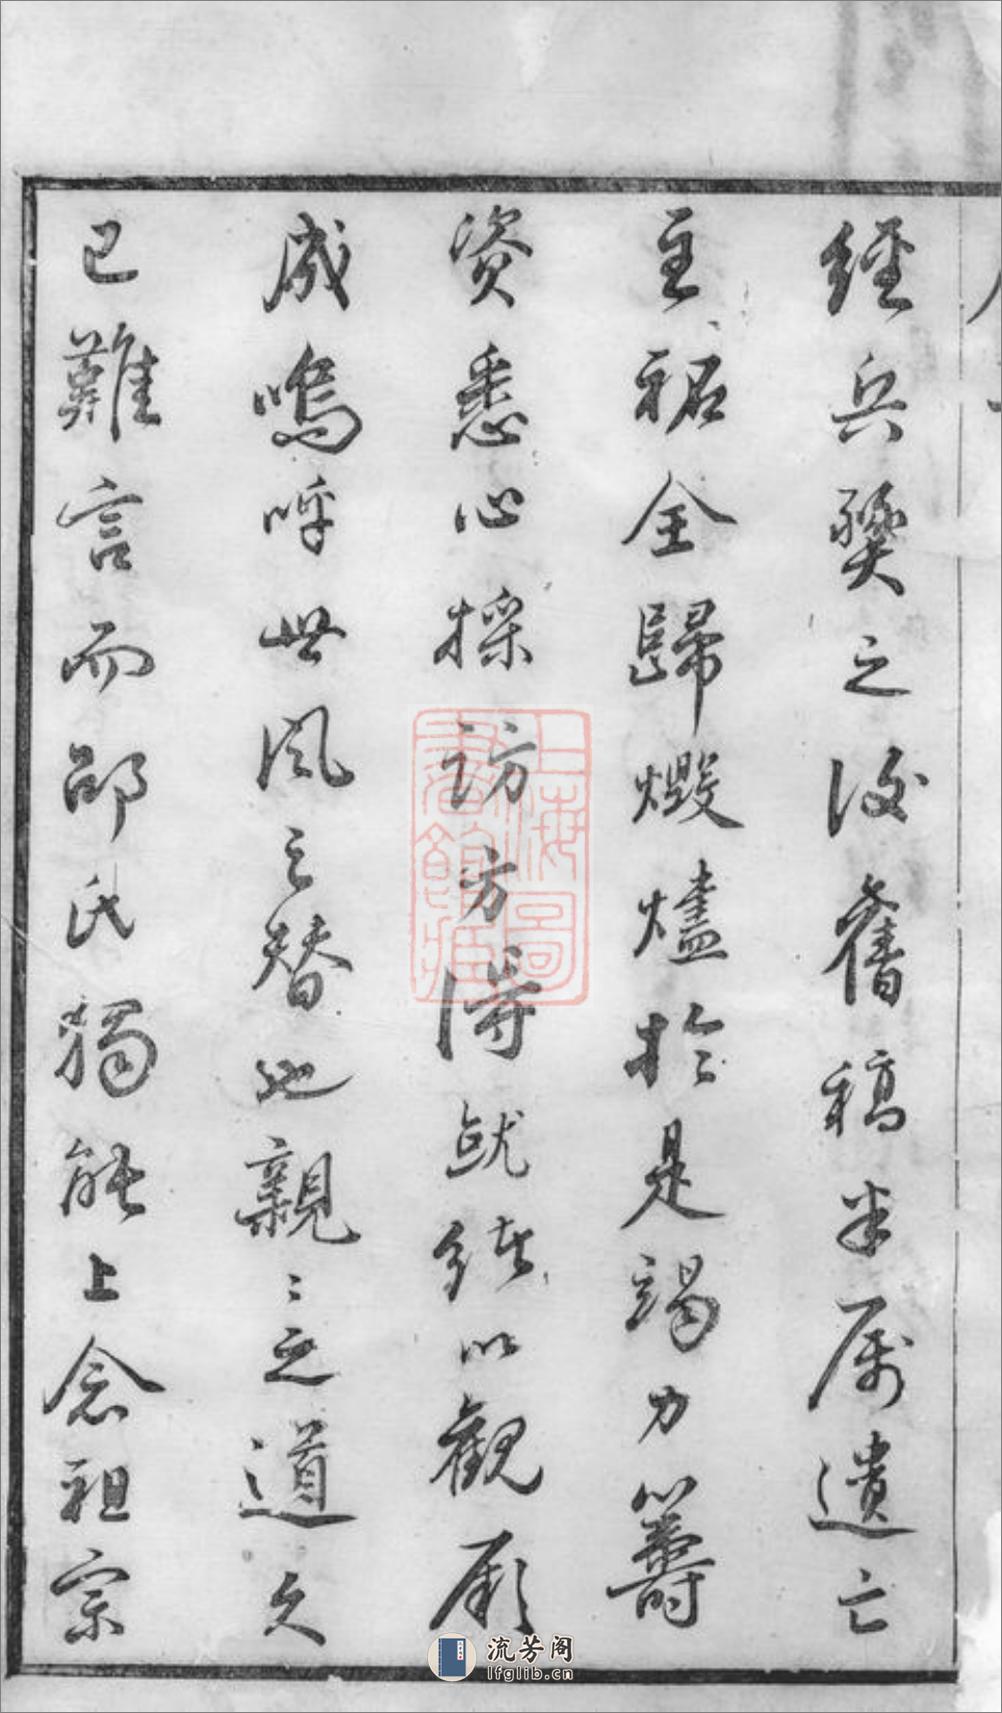 經兵燹之後舊稿半属遺亡
主祏全歸燬燼於是竭力籌
资悉心採訪方得就緒以觀厥
成嗚呼世风之替也親〻之道久
已難言而邵氏獨能上念祖宗
上海圖書館藏
流芳阁
lfglib.cn